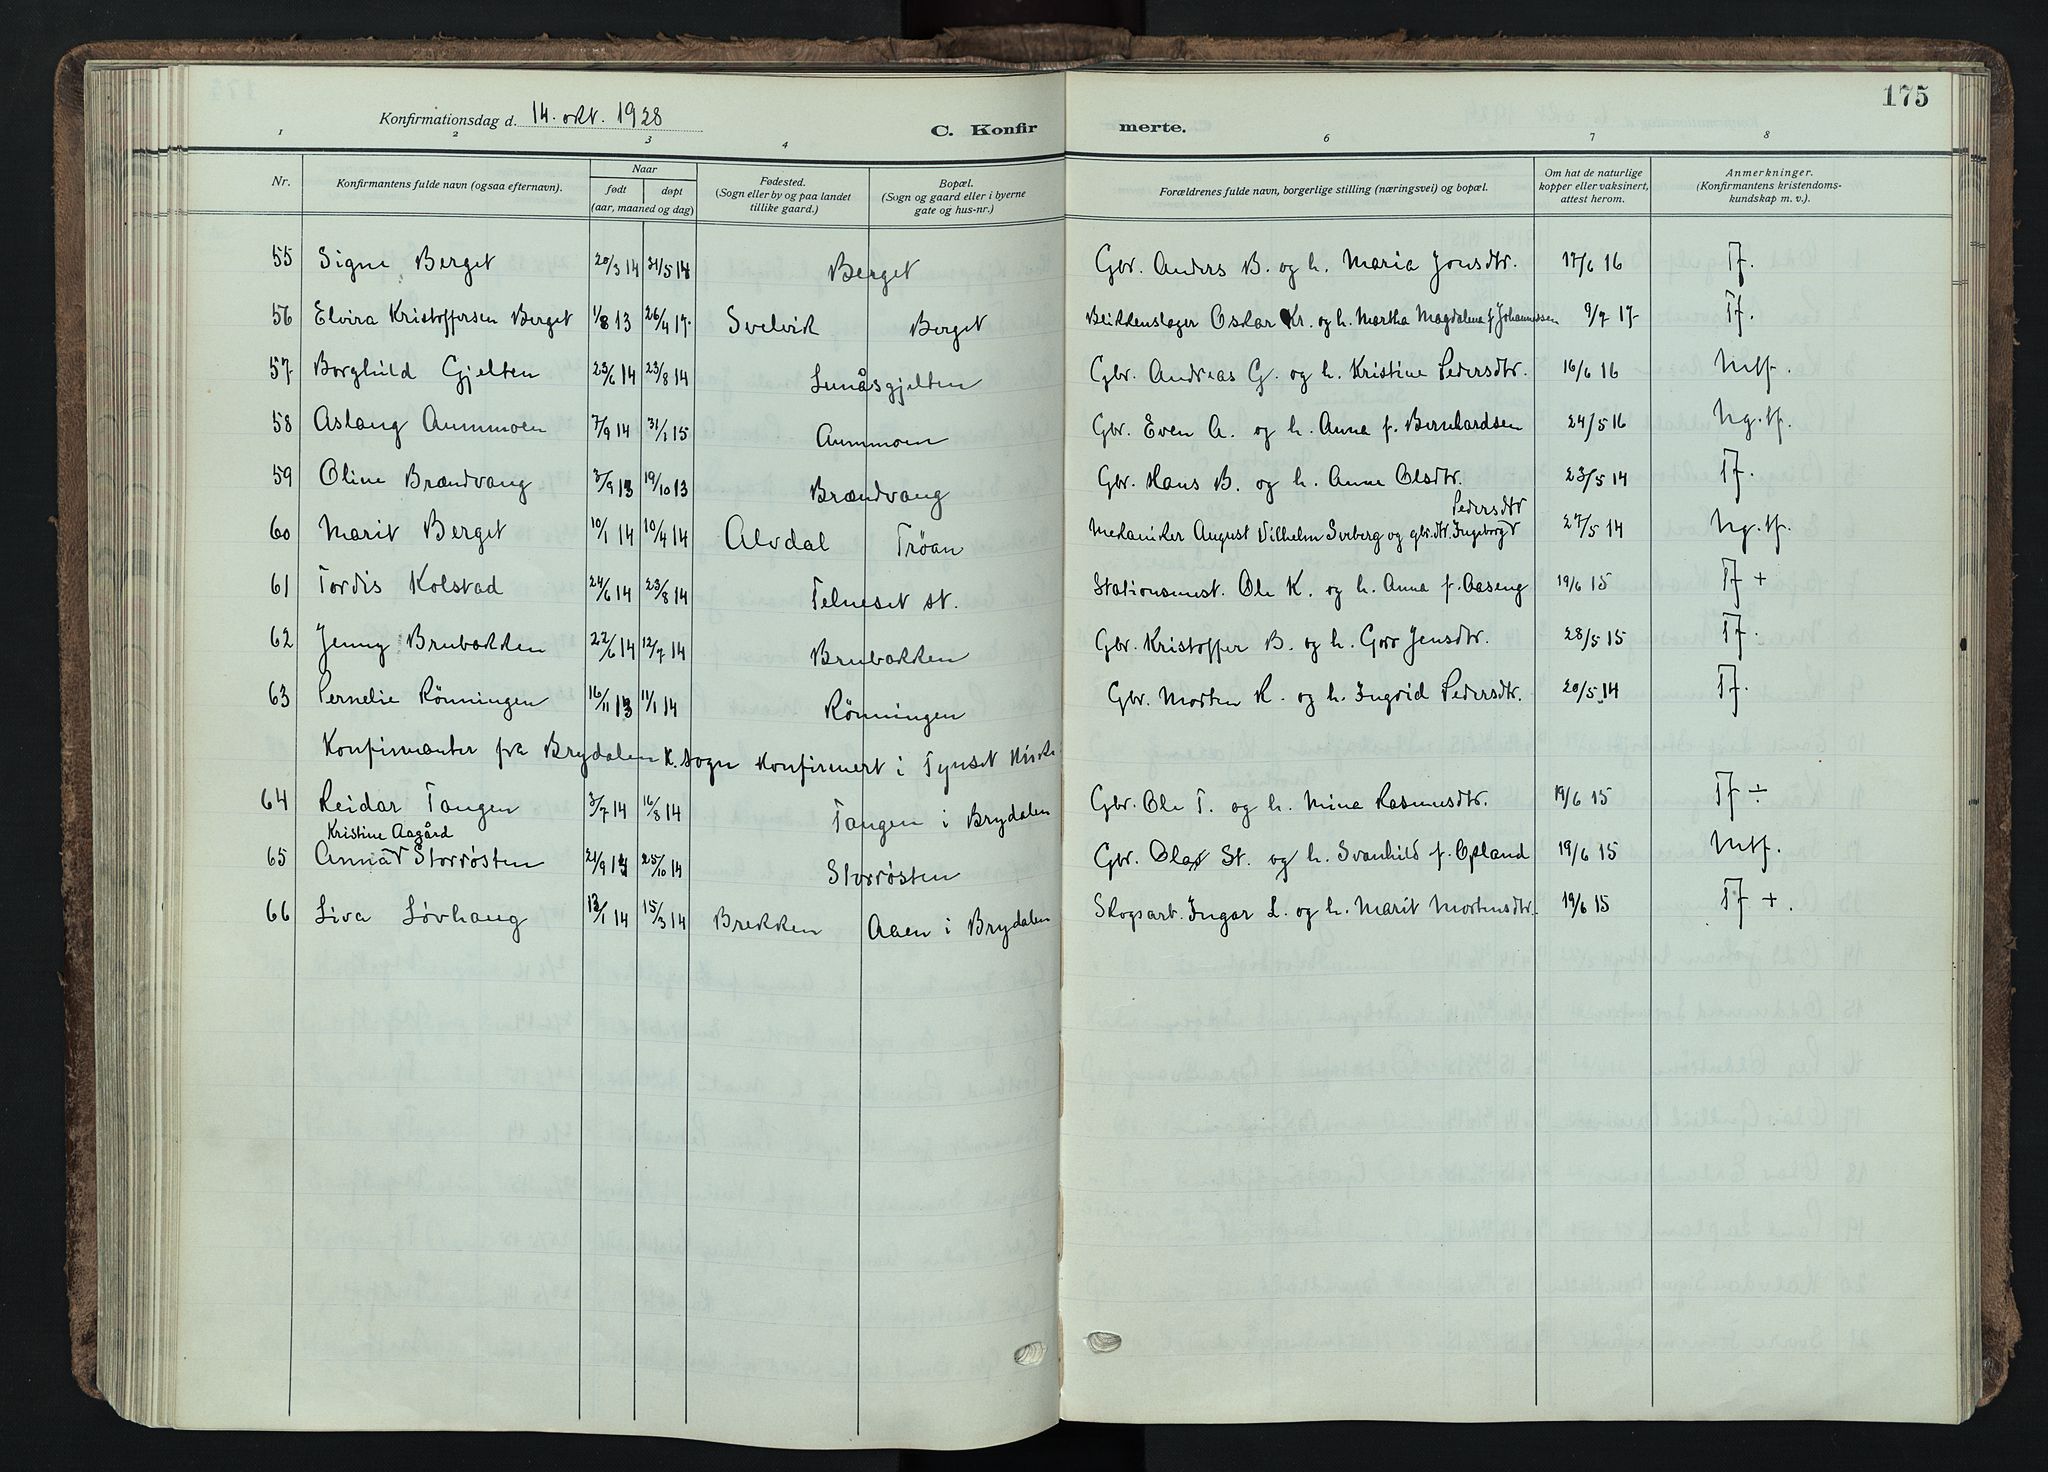 175
Konfirmationsdag d. 14. okt. 1928
C. Konfirmerte.
1 2 3 4 6 7 8
Nr. | Konfirmantens fulde navn (ogsaa efternavn). | Naar født døpt (aar, maaned og dag) | Fødested. (Sogn eller by og paa landet tillike gaard.) | Bopæl. (Sogn og gaard eller i byerne gate og hus-nr.) | Forældrenes fulde navn, borgerlige stilling (næringsvei) og bopæl. | Om hat de naturlige kopper eller vaksinert, attest herom. | Anmerkninger. (Konfirmantens kristendomskundskap m. v.).
55 Signe Berget 20/3 14 31/5 14 Berget Gbr. Anders B. og h. Maria Jonsdtr. 17/6 16 Tf.
56 Elvira Kristoffersen Berget 1/8 13 26/4 17. Svelvik Berget Blikkenslager Oskar Kr. og h. Martha Magdalena f Johannessen 9/7 17 Tf.
57 Borghild Gjelten 23/6 14 23/8 14 Lunåsgjelten Gbr. Andreas G. og h. Kristine Pedersdtr. 16/6 16 Mtf.
58 Aslaug Aummoen 7/9 14 31/1 15 Aummoen Gbr. Even A. og h. Anna f. Bernhardsen 24/5 16 Ng. tf.
59 Oline Brændvang 3/9 13 19/10 13 Brændvang Gbr. Hans B. og h. Anne Olsdtr. 23/5 14 Tf.
60 Marit Berget 10/1 14 10/4 14 Alvdal Trøan Mekaniker August Vilhelm Sveberg og gbr.dtr. Ingeborg Pedersdtr 27/5 14 Ng. tf.
61 Tordis Kolstad 24/6 14 23/8 14 Telneset st. Stationsmest. Ole K. og h. Anna f. Aaseng 19/6 15 Tf +
62 Jenny Brubakken 22/6 14 12/7 14 Brubakken Gbr. Kristoffer B. og h. Goro Jensdtr. 28/5 15 Tf.
63 Pernelie Rønningen 16/11 13 11/1 14 Rønningen Gbr. Morten R. og h. Ingrid Pedersdtr. 20/5 14 Tf.
Konfirmanter fra Brydalen K. sogn konfirmert i Tynset Kirke
64 Reidar Tangen 3/7 14 16/8 14 Tangen i Brydalen Gbr. Ole T. og h. Mina Rasmusdtr. 19/6 15 Tf ÷
Kristine Aagård
65 Anna Storrøsten 21/9 14 25/10 14 Storrøsten Gbr. Olav St. og h. Svanhild f. Opland 19/6 15 Mtf.
66 Liva Løvhaug 12/1 14 15/3 14 Brekken Aaen i Brydalen Skogsarb. Ingar L. og h. Marit Mortensdtr. 19/6 15 Tf +.